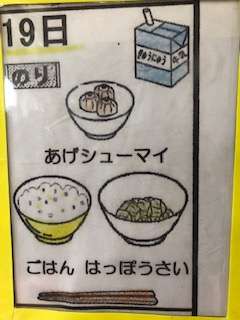 19日
のり
ぎゅうにゅう
あげシューマイ
ごはん はっぽうさい